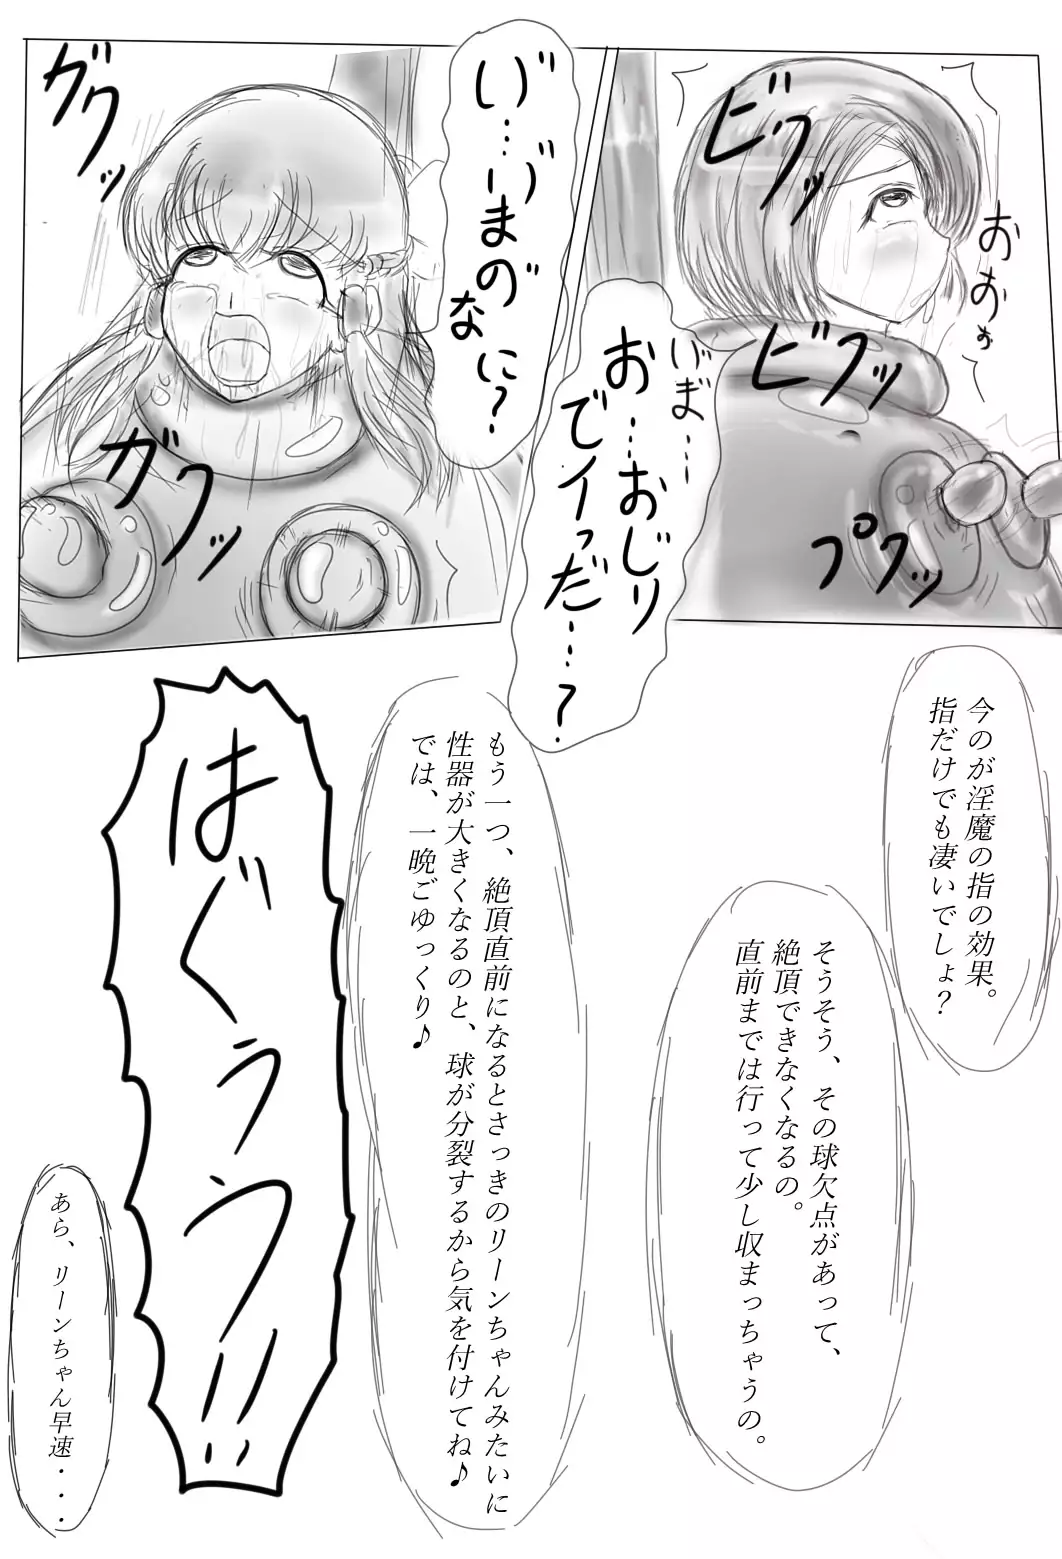 ビクッ
おおぉ
ビクッ
プクッ
いま…
お…おしり
でイっだ…?
い゛…い゛まの゛
なに?
ガクッ
ガクッ
今のが淫魔の指の効果。
指だけでも凄いでしょ?
そうそう、その球欠点があって、
絶頂できなくなるの。
直前までは行って少し収まっちゃうの。
もう一つ、絶頂直前になるとさっきのリーンちゃんみたいに
性器が大きくなるのと、球が分裂するから気を付けてね♪
では、一晩ごゆっくり♪
はぐぅう!!
あら、リーンちゃん早速・・・